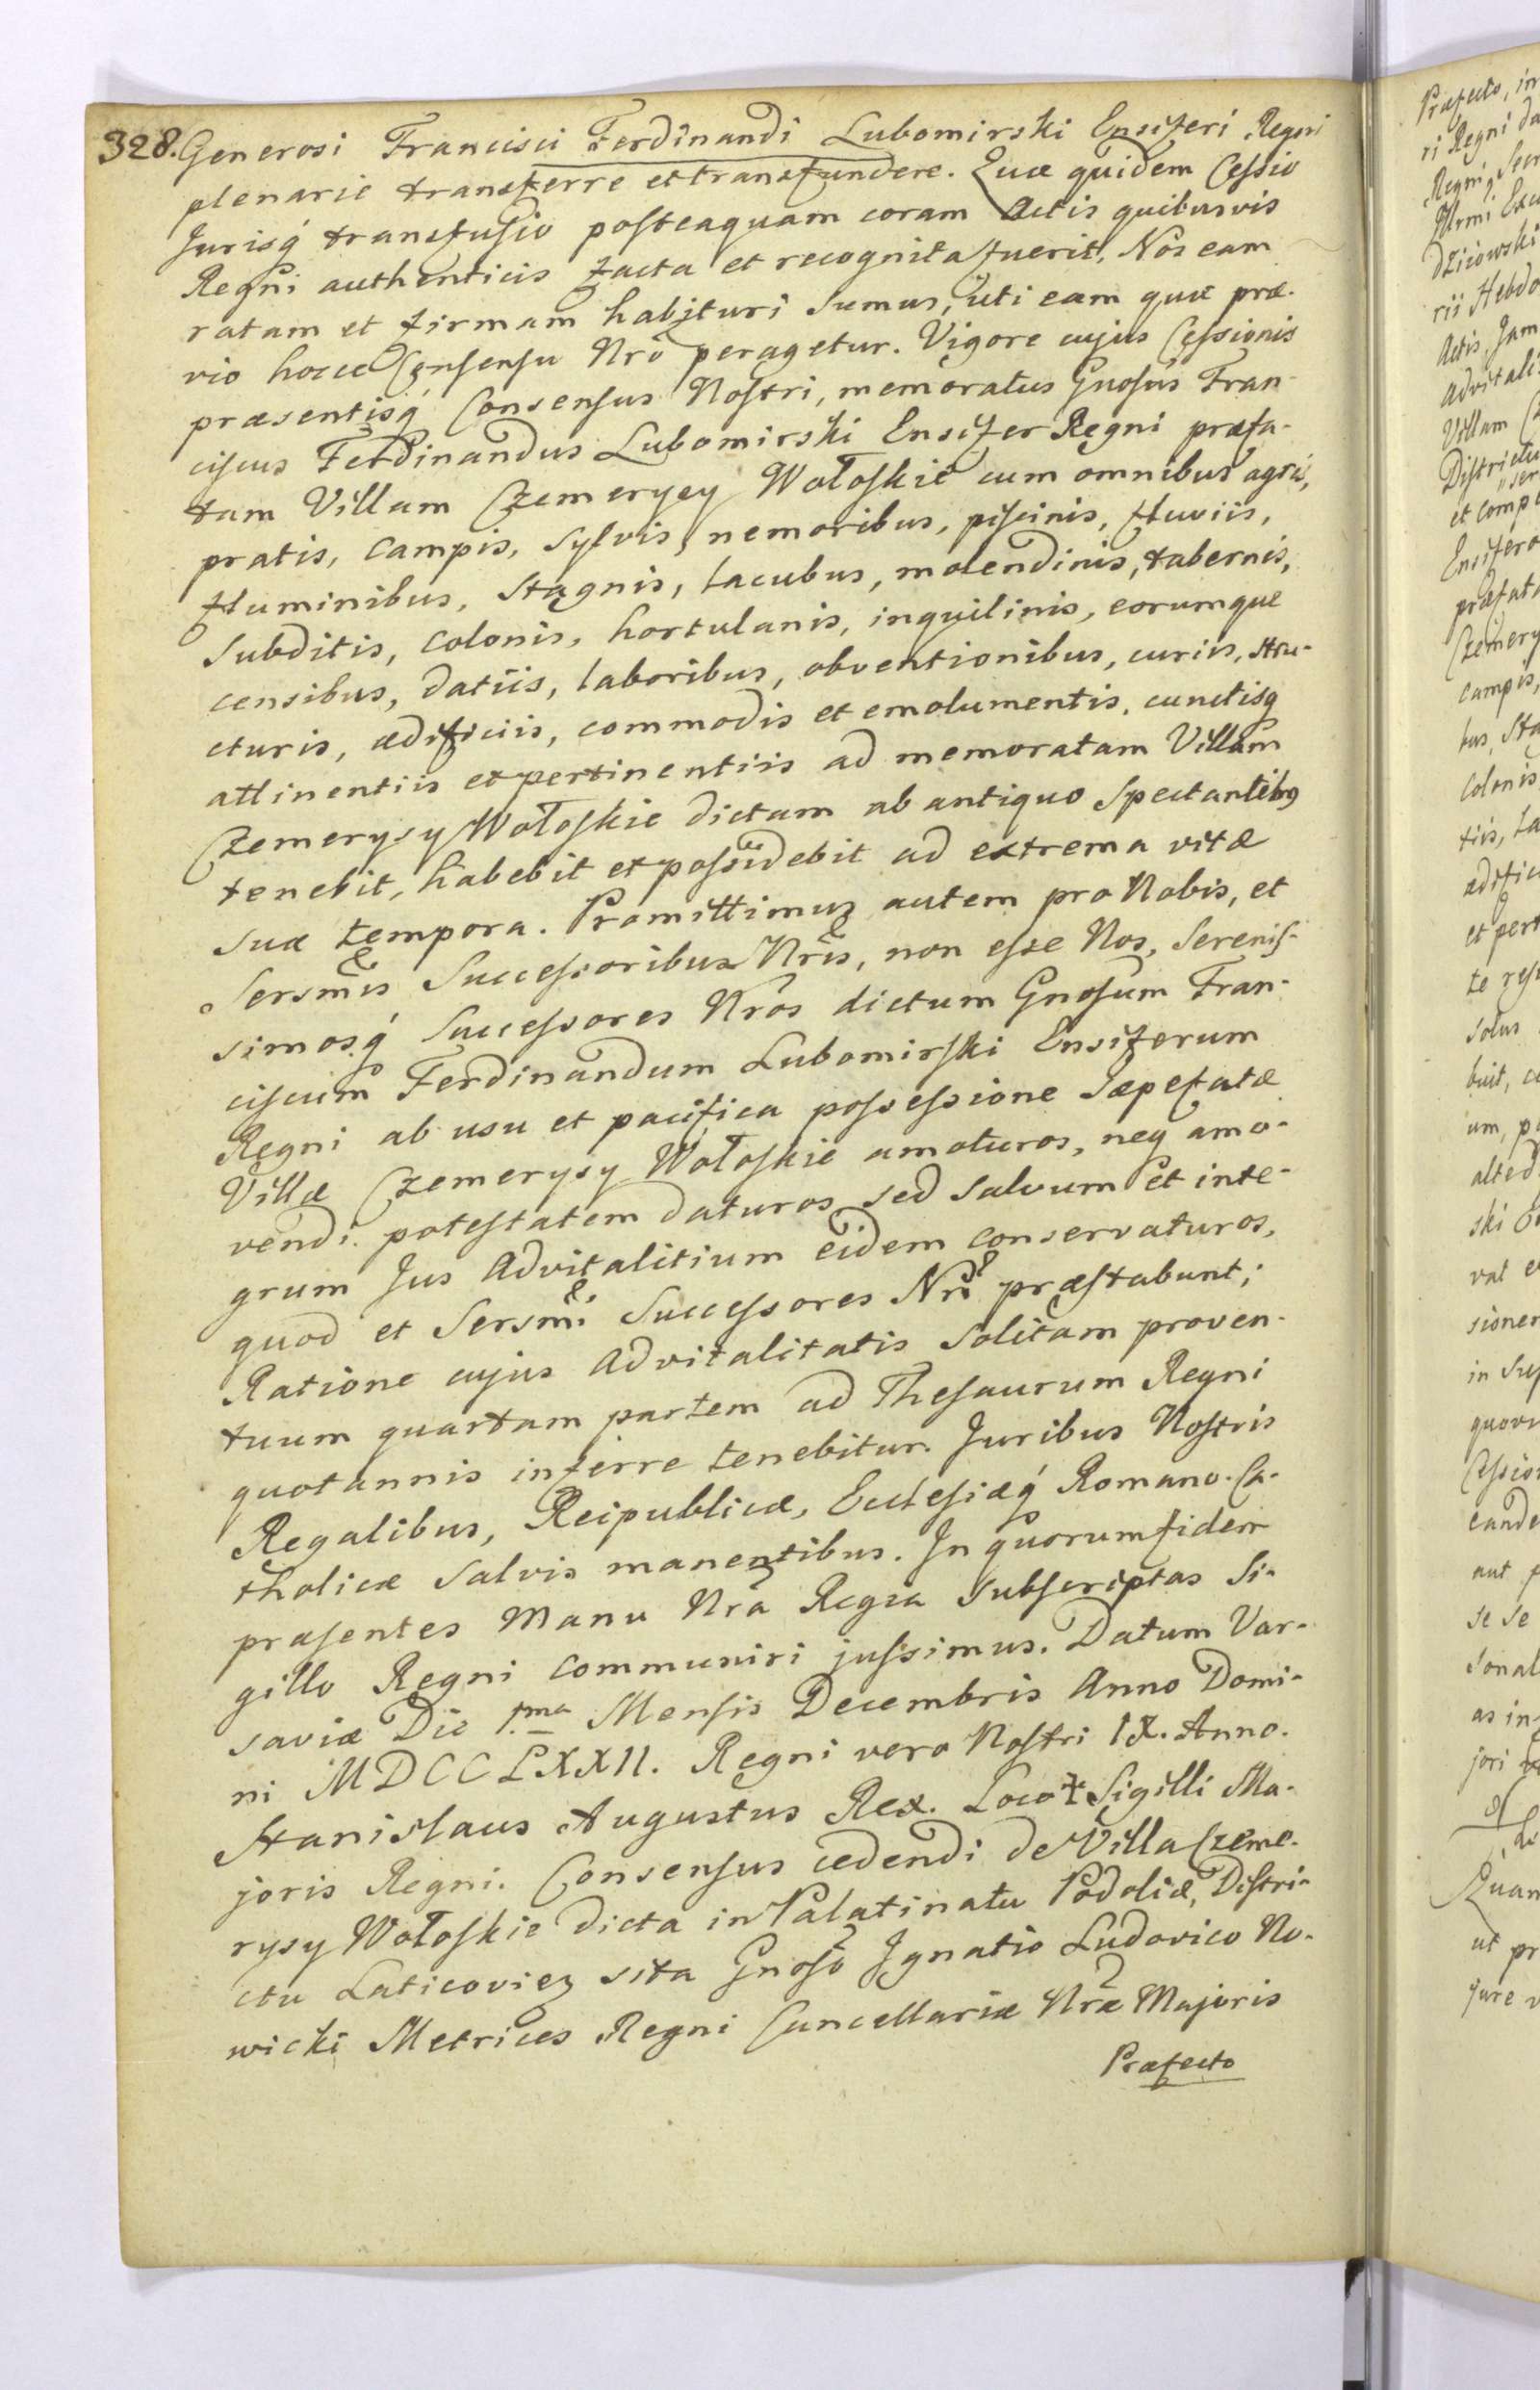 328. Generosi Francisci Ferdinandi Lubomirski Ensiferi Regni
plenarie transferre et transfundere. Quæ quidem Cessio
Jurisq́ transfusio posteaquam coram Actis quibusvis
Regni authenticis facta et recognita fuerit, Nos eam
ratam et firmam habituri sumus, uti eam quæ præ-
vio hocce Consensu Nrō peragetur. Vigore cujus Cessionis
præsentisq́ Consensus Nostri, memoratus Gnosus Fran-
ciscus Ferdinandus Lubomirski Ensifer Regni præfa-
tam Villam Czemerysy Wołoskie cum omnibus agris,
pratis, campis, sylvis, nemoribus, piscinis, fluviis,
fluminibus, stagnis, lacubus, molendinis, tabernis,
subditis, colonis, hortulanis, inquilinis, eorumque
censibus, datiis, laboribus, obventionibus, curiis, stru-
cturis, ædificiis, commodis et emolumentis, cunctisq
attinentiis et pertinentiis ad memoratam Villam
Czemerysy Wołoskie dictam ab antiquo spectantibꝰ
tenebit, habebit et possidebit ad extrema vitæ
suæ tempora. Promittimus autem pro Nobis, et
Sersmis Successoribus Nrīs, non esse Nos, Serenis-
simosq́ Successores Nrōs dictum Gnosum Fran-
ciscum Ferdinandum Lubomirski Ensiferum
Regni ab usu et pacifica possessione sæpefatæ
Villæ Czemerysy Wołoskie amoturos, neq amo-
vendi potestatem daturos, sed salvum et inte-
grum Jus Advitalitium eidem conservaturos,
quod et Sersmi Successores Nrī præstabunt;
Ratione cujus Advitalitatis solitam proven-
tuum quartam partem ad Thesaurum Regni
quotannis inferre tenebitur. Juribus Nostris
Regalibus, Reipublicæ, Ecclesiæq́ Romano-Ca-
tholicæ salvis manentibus. In quorum fidem
præsentes Manu Nrā Regia subscriptas Si-
gillo Regni communiri jussimus. Datum Var-
saviæ Die 1.ma Mensis Decembris Anno Domi-
ni MDCCLXXII. Regni vero Nostri IX. Anno.
Stanislaus Augustus Rex. Loco + Sigilli Ma-
joris Regni. Consensus cedendi de Villa Czeme-
rysy Wołoskie dicta in Palatinatu Podoliæ, Distri-
ctu Laticovien sita Gnoso Ignatio Ludovico No-
wicki Metrices Regni Cancellariæ Nræ Majoris
Præfecto
Præfecto, in
ri Regni da
Regni, Secr
dzicowski
rii Hebdo
Actis, Jam
Advitali
Villam
Districtu
et comp
Ensifero
præfata
Czemery
campis,
bus, Sta
colonis
tiis, la
ædific
et pert
te res
solus
buit, c
um, p
alted
ski
vat e
sionem
in Sup
quovi
Cessio
eande
aut p
se se
sonal
as in
jori
Quan
ut pr
jure v